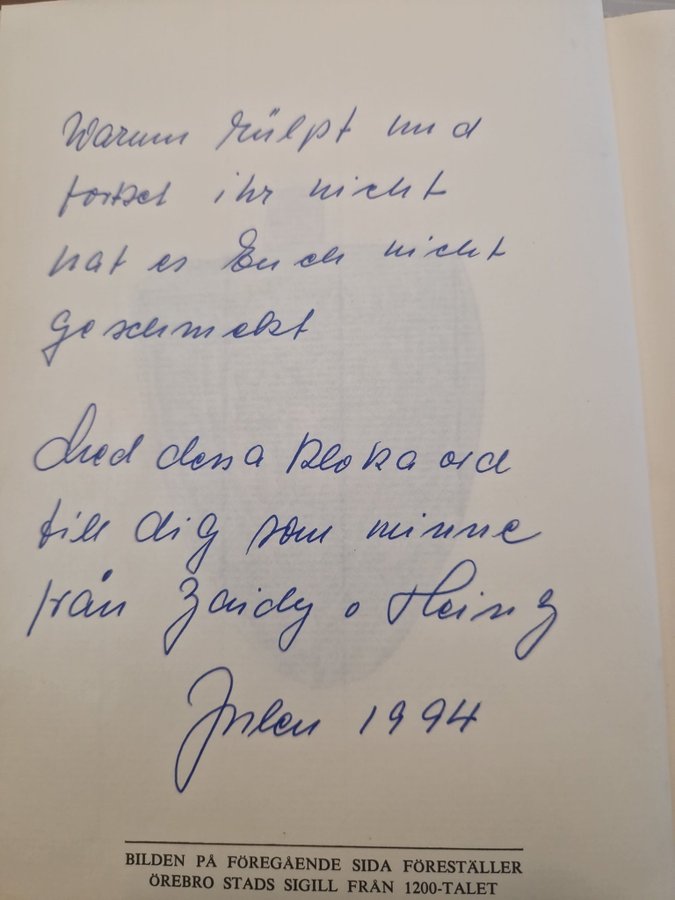 Warum rülpst und
fortset ihr nicht
hat es Euch nicht
geschmekt
Med dessa kloka ord
till dig som minne
från Zaidy o Heinz
Julen 1994
BILDEN PÅ FÖREGÅENDE SIDA FÖRESTÄLLER
ÖREBRO STADS SIGILL FRÅN 1200-TALET